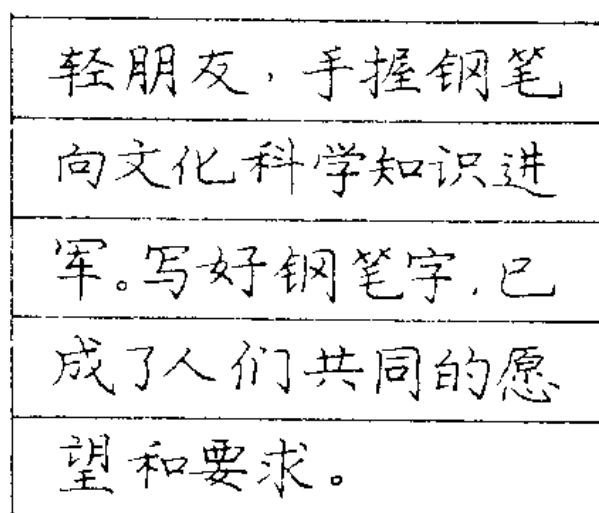 轻朋友，手握钢笔
向文化科学知识进
军。写好钢笔字，已
成了人们共同的愿
望和要求。